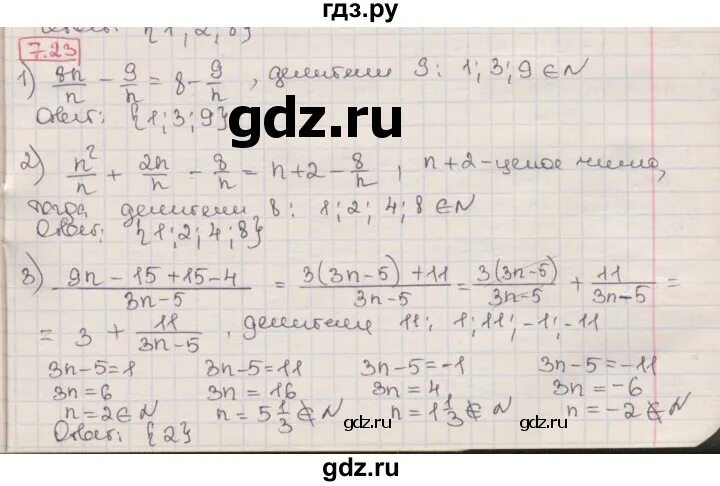 гдз.ру
Ответ: {1, 2, 6}
7.23
1) 8n/n - 9/n = 8 - 9/n, делители 9: 1; 3; 9 ∈ N
Ответ: {1; 3; 9}
gdz.ru
2) n²/n + 2n/n - 8/n = n+2 - 8/n, n+2 - целое число,
тогда делители 8: 1; 2; 4; 8 ∈ N
Ответ: {1; 2; 4; 8}
3) (9n - 15 + 15 - 4)/(3n-5) = (3(3n-5) + 11)/(3n-5) = 3(3n-5)/(3n-5) + 11/(3n-5) =
= 3 + 11/(3n-5), делители 11: 1; 11; -1; -11
3n-5=1 3n-5=11 3n-5=-1 3n-5=-11
3n=6 3n=16 3n=4 3n=-6
n=2∈N n=5 1/3 ∉ N n=1 1/3 ∉ N n=-2 ∉ N
Ответ: {2}
gdz.ru gdz.ru
gdz.ru